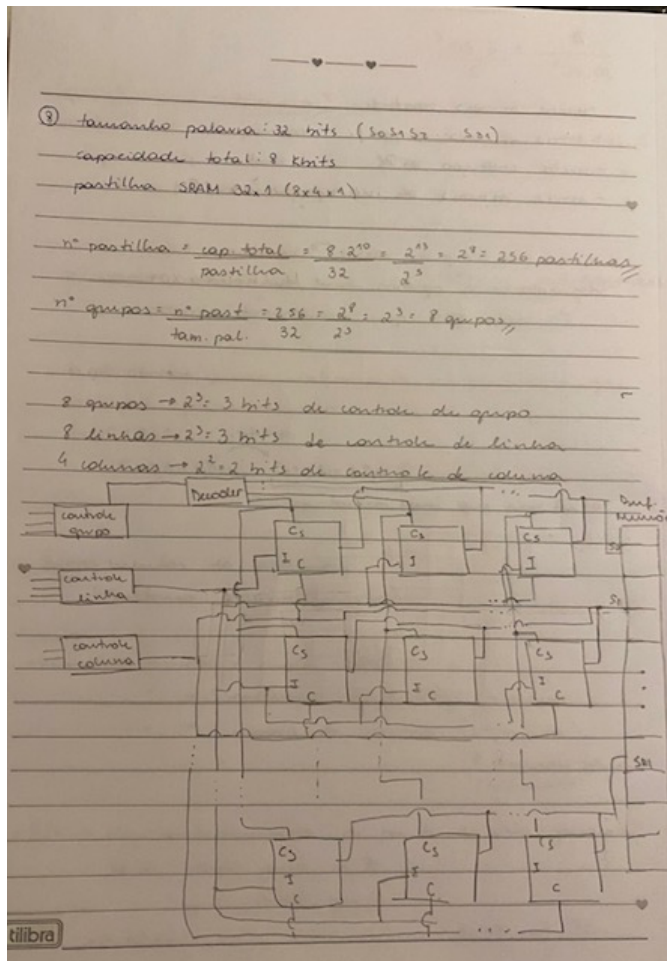 ⑧ tamanho palavra: 32 bits (S0 S1 S2 ... S31)
capacidade total: 8 Kbits
pastilha SRAM 32x1 (8x4x1)
n° pastilha = cap. total / pastilha = 8 · 2^10 / 32 = 2^13 / 2^5 = 2^8 = 256 pastilhas
n° grupos = n° past / tam. pal. = 256 / 32 = 2^8 / 2^5 = 2^3 = 8 grupos
8 grupos → 2^3 = 3 bits de controle de grupo
8 linhas → 2^3 = 3 bits de controle de linha
4 colunas → 2^2 = 2 bits de controle de coluna
Decoder
controle grupo
CS I C
CS I
CS I
S0
controle linha
S1
controle coluna
CS I C
CS I C
CS I C
S31
CS I C
CS I C
CS I C
tilibra